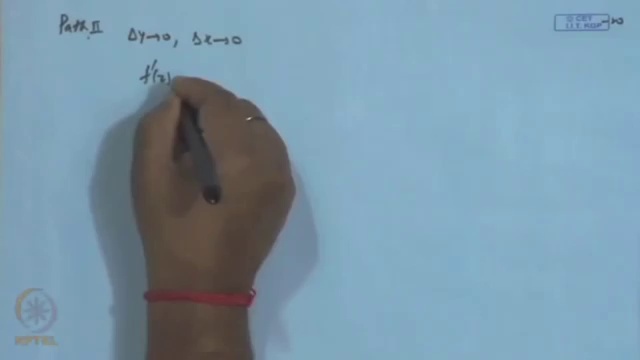 Path II Δy→0, Δx→0
f'(z)
© CET
I.I.T. KGP
NPTEL